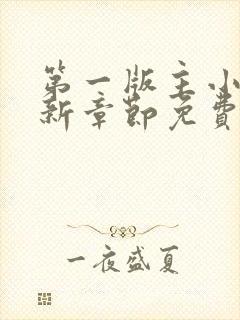 第一版主小
新章節免費
一夜盛夏